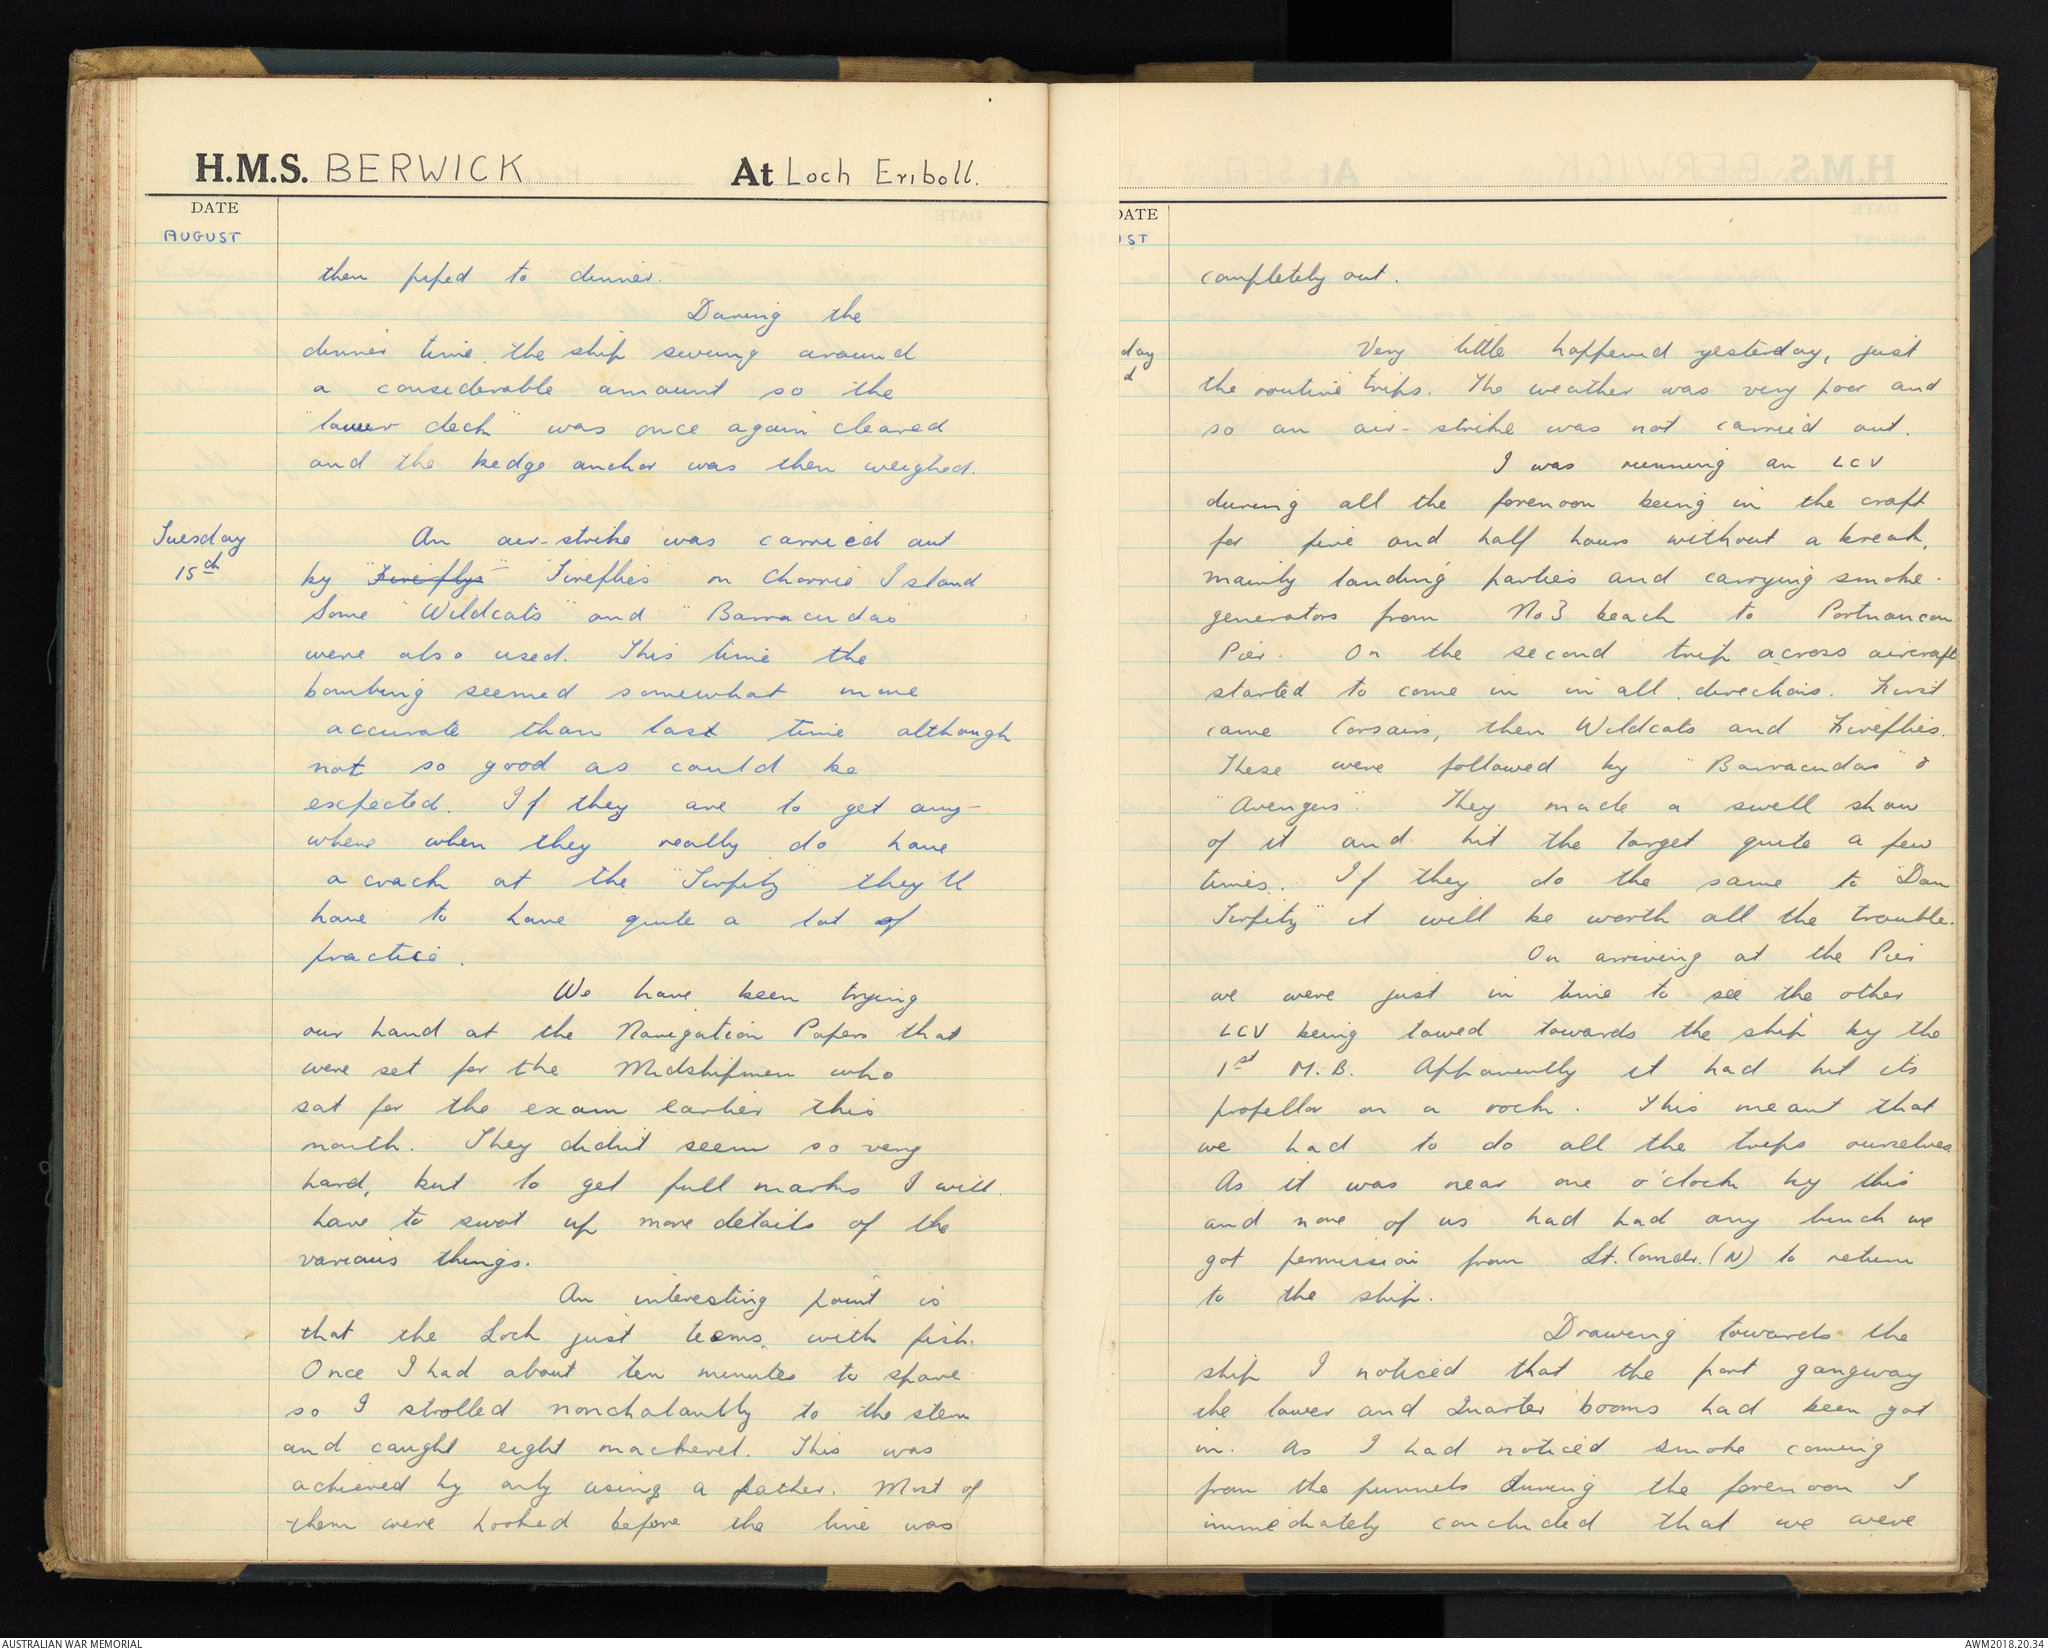 H.M.S. BERWICK At Loch Eriboll.
DATE
AUGUST
then piped to dinner.
During the
dinner time the ship swung around
a considerable amount so the
"lower deck" was once again cleared
and the kedge anchor was then weighed.
Tuesday
15th
An air-strike was carried out
by "Fireflys" Fireflies on Chorrie Island
Some "Wildcats" and "Barracudas"
were also used. This time the
bombing seemed somewhat more
accurate than last time although
not so good as could be
expected. If they are to get any-
where when they really do have
a crack at the "Tirpitz" they'll
have to have quite a lot of
practice.
We have been trying
our hand at the Navigation Papers that
were set for the Midshipmen who
sat for the exam earlier this
month. They didn't seem so very
hard, but to get full marks I will
have to swot up more details of the
various things.
An interesting point is
that the Loch just teems with fish.
Once I had about ten minutes to spare
so I strolled nonchalantly to the stern
and caught eight mackerel. This was
achieved by only using a feather. Most of
them were hooked before the line was
DATE
UST
completely out.
day
d
Very little happened yesterday, just
the routine trips. The weather was very poor and
so an air-strike was not carried out.
I was running an LCV
during all the forenoon being in the craft
for five and half hours without a break,
mainly landing parties and carrying smoke-
generators from No 3 beach to Portnancon
Pier. On the second trip across aircraft
started to come in in all directions. First
came Corsairs, then Wildcats and Fireflies.
These were followed by "Barracudas" &
"Avengers". They made a swell show
of it and hit the target quite a few
times. If they do the same to "Dan
Tirpitz" it will be worth all the trouble.
On arriving at the Pier
we were just in time to see the other
LCV being towed towards the ship by the
1st M.B. Apparently it had hit its
propellor on a rock. This meant that
we had to do all the trips ourselves
As it was near one o'clock by this
and none of us had had any lunch we
got permission from Lt. Comdr. (N) to return
to the ship.
Drawing towards the
ship I noticed that the port gangway
the lower and Quarter booms had been got
in. As I had noticed smoke coming
from the funnels during the forenoon I
immediately concluded that we were
AUSTRALIAN WAR MEMORIAL
AWM2018.20.34